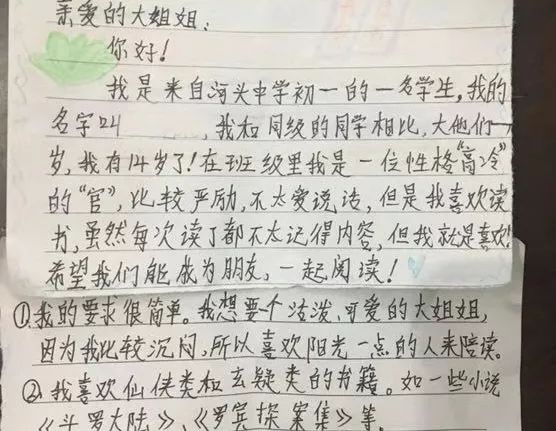 亲爱的大姐姐:
你好!
我是来自河头中学初一的一名学生,我的
名字叫 ,我和同级的同学相比,大他们一
岁,我有14岁了!在班级里我是一位性格“高冷”
的“官”,比较严励,不太爱说话,但是我喜欢读
书,虽然每次读了都不太记得内容,但我就是喜欢!
希望我们能成为朋友,一起阅读!
①我的要求很简单。我想要一个活泼、可爱的大姐姐,
因为我比较沉闷,所以喜欢阳光一点的人来陪读。
②我喜欢仙侠类和玄疑类的书籍。如一些小说
《斗罗大陆》、《罗宾探案集》等。